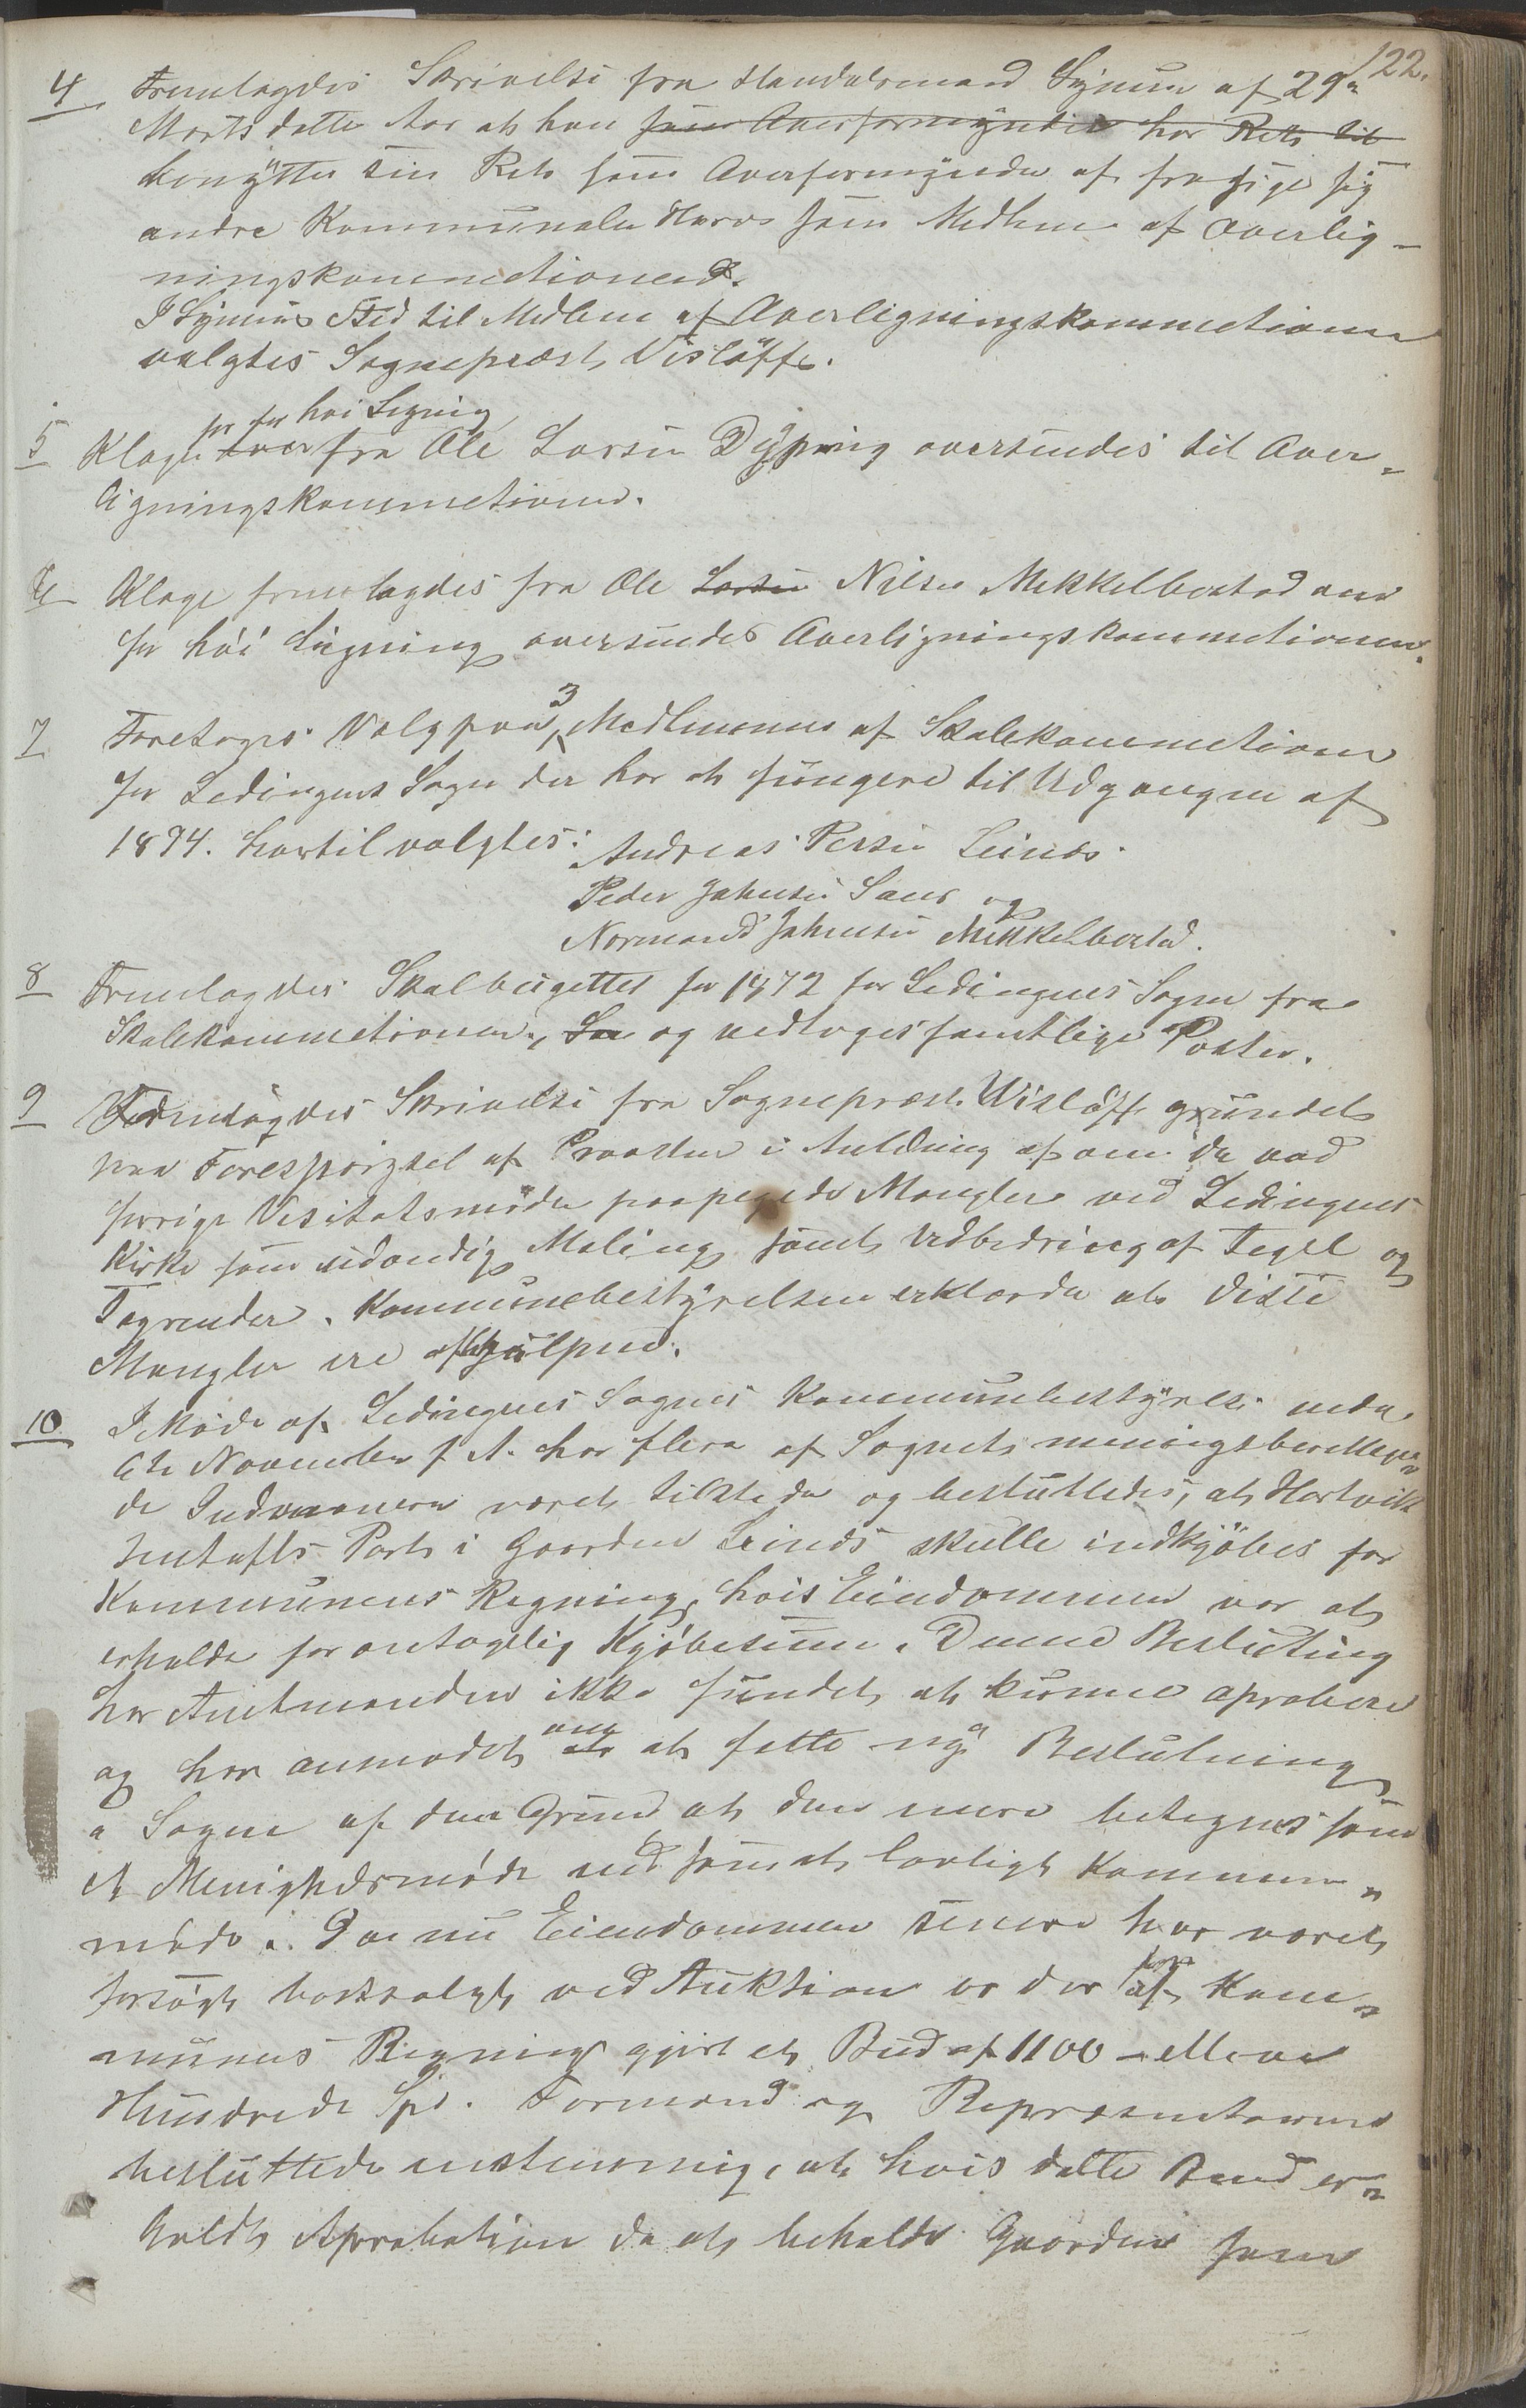 122.
4 Fremlagdes Skrivelse fra Handelsmand Lynum af 29de
Marts dette Aar at han som Overformynder har Ret til
benytter sin Ret som Overformynder at frasige sig
andre Kommunale Hverv som Medlem af Overlig-
ningskommitionen.
I Lynums Sted til Medlem af Overligningskommitionen
valgtes Sogneprest Visløff.
for for høi Ligning
5 Klage over fra Ole Larsen Dyping oversendes til Over-
ligningskommitionen.
6 Klage fremlagdes fra Ole Larsen Nilsen Mekkelbostad over
for høi Ligning oversendes Overligningskommitionen.
7 Foretoges Valg paa 3 Medlemmer af Skolekommitionen
for Ledingens Sogn der har at fungere til Udgangen af
1874. hvortil valgtes: Andreas Persen Leinæs
Peder Johnsen Sans og
Normand Johnsen Mekkelbostad.
8 Fremlagdes Skolbugettet for 1872 for Ledingens Sogn fra
Skolekommitionen, og vedtoges samtlige Poster.
9 Fremlagdes Skrivelse fra Sogneprest Wisløff grundet
paa Forespørgsel af Provsten i Anledning af om de ved
forrige Visitatsmøde paapegede Mangler ved Ledingens
Kirke som udvendig Maling samt Udbedring af Tegel og
Tagrender. Kommunebestyrelsen erklærde at disse
Mangler ere afhjulpne.
10 I Møde af Ledingens Sognes Kommunbestyrelse under
6te November f. A. har flere af Sognets meningsberettigen-
de Indvaanere været tilstede og besluttedes, at Hartvik
Part i Gaarden Leinæs skulle indkjøbes for
Kommunens Regning, hvis Eiendommen var at
erholde for antagelig Kjøbesum. Denne Beslutning
har Amtmanden ikke fundet at kunne aprobere
og har anmodet om at at fatte ny Beslutning
i Sagen af den Grund at den mere betegnes som
et Menighedsmøde end som et lovligt Kommun-
møde. Da nu Eiendommen senere har været
forsøgt bortsolgt ved Auktion er der for af Kom-
munens Regning gjort et Bud af 1100 – elleve
Hundrede Spd. Formænd og Repræsentanterne
besluttede enstemmig, at hvis dette Bud er-
holdt Aprobation da at beholde Gaarden som